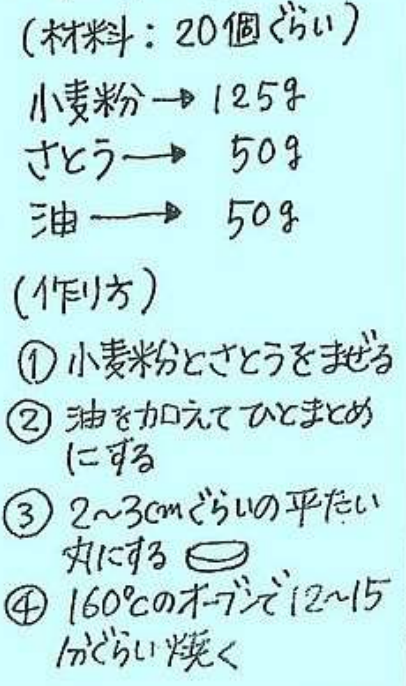 (材料：20個ぐらい)
小麦粉→125g
さとう→50g
油→50g
(作り方)
①小麦粉とさとうをまぜる
②油を加えてひとまとめ
にする
③2〜3cmぐらいの平たい
丸にする
④160℃のオーブンで12〜15
分ぐらい焼く